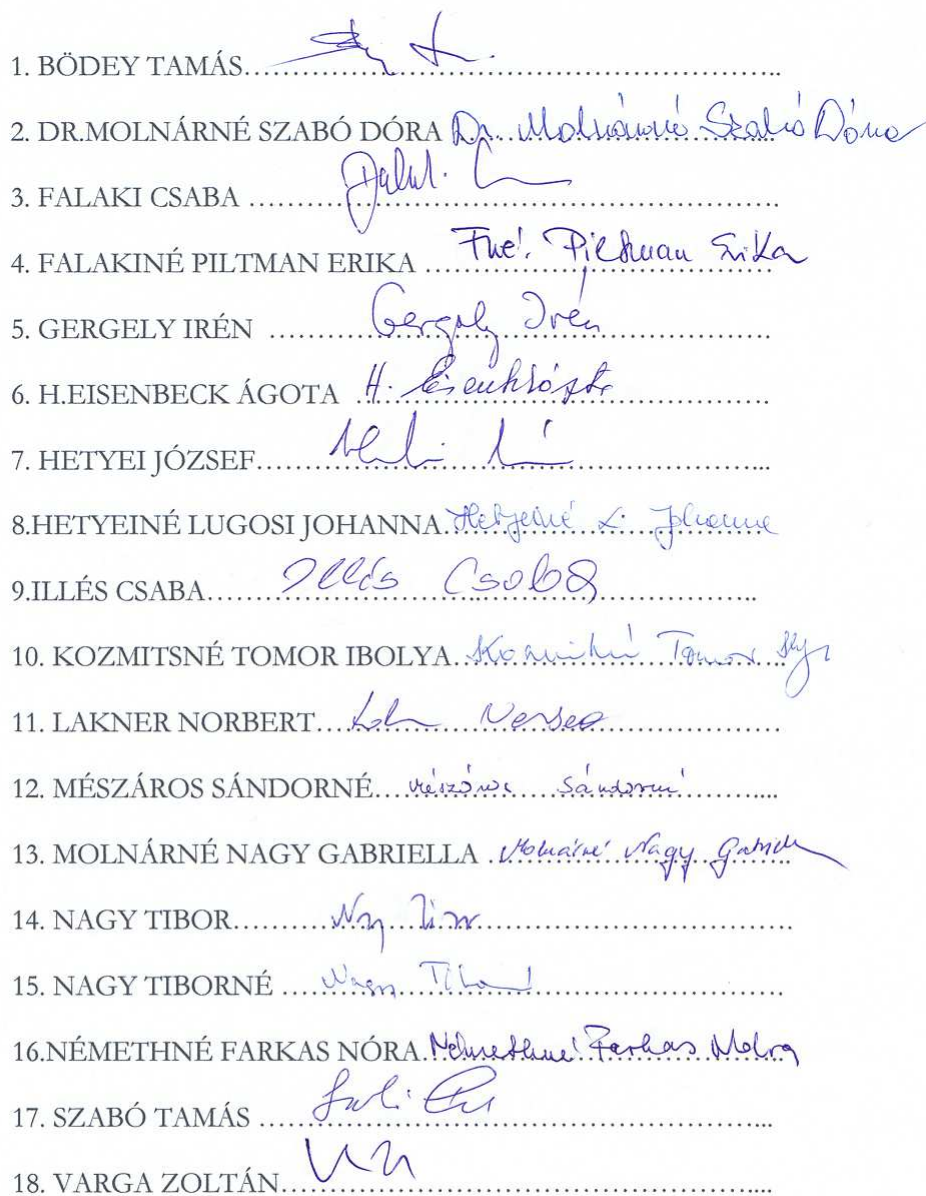 1. BÖDEY TAMÁS……………………………………………..
2. DR.MOLNÁRNÉ SZABÓ DÓRA Dr. Molnárné Szabó Dóra
3. FALAKI CSABA ……………………………………………….
4. FALAKINÉ PILTMAN ERIKA Fné. Piltman Erika
5. GERGELY IRÉN Gergely Irén
6. H.EISENBECK ÁGOTA H.
7. HETYEI JÓZSEF……………………………………………...
8.HETYEINÉ LUGOSI JOHANNA Hetyeiné L. Johanna
9.ILLÉS CSABA Illés Csaba
10. KOZMITSNÉ TOMOR IBOLYA Tomor
11. LAKNER NORBERT……………………………………
12. MÉSZÁROS SÁNDORNÉ Mészáros Sándorné
13. MOLNÁRNÉ NAGY GABRIELLA Molnárné Nagy Gabriella
14. NAGY TIBOR Nagy Tibor
15. NAGY TIBORNÉ Nagy
16.NÉMETHNÉ FARKAS NÓRA Némethné Farkas Nóra
17. SZABÓ TAMÁS ……………………………………………...
18. VARGA ZOLTÁN…………………………………………....